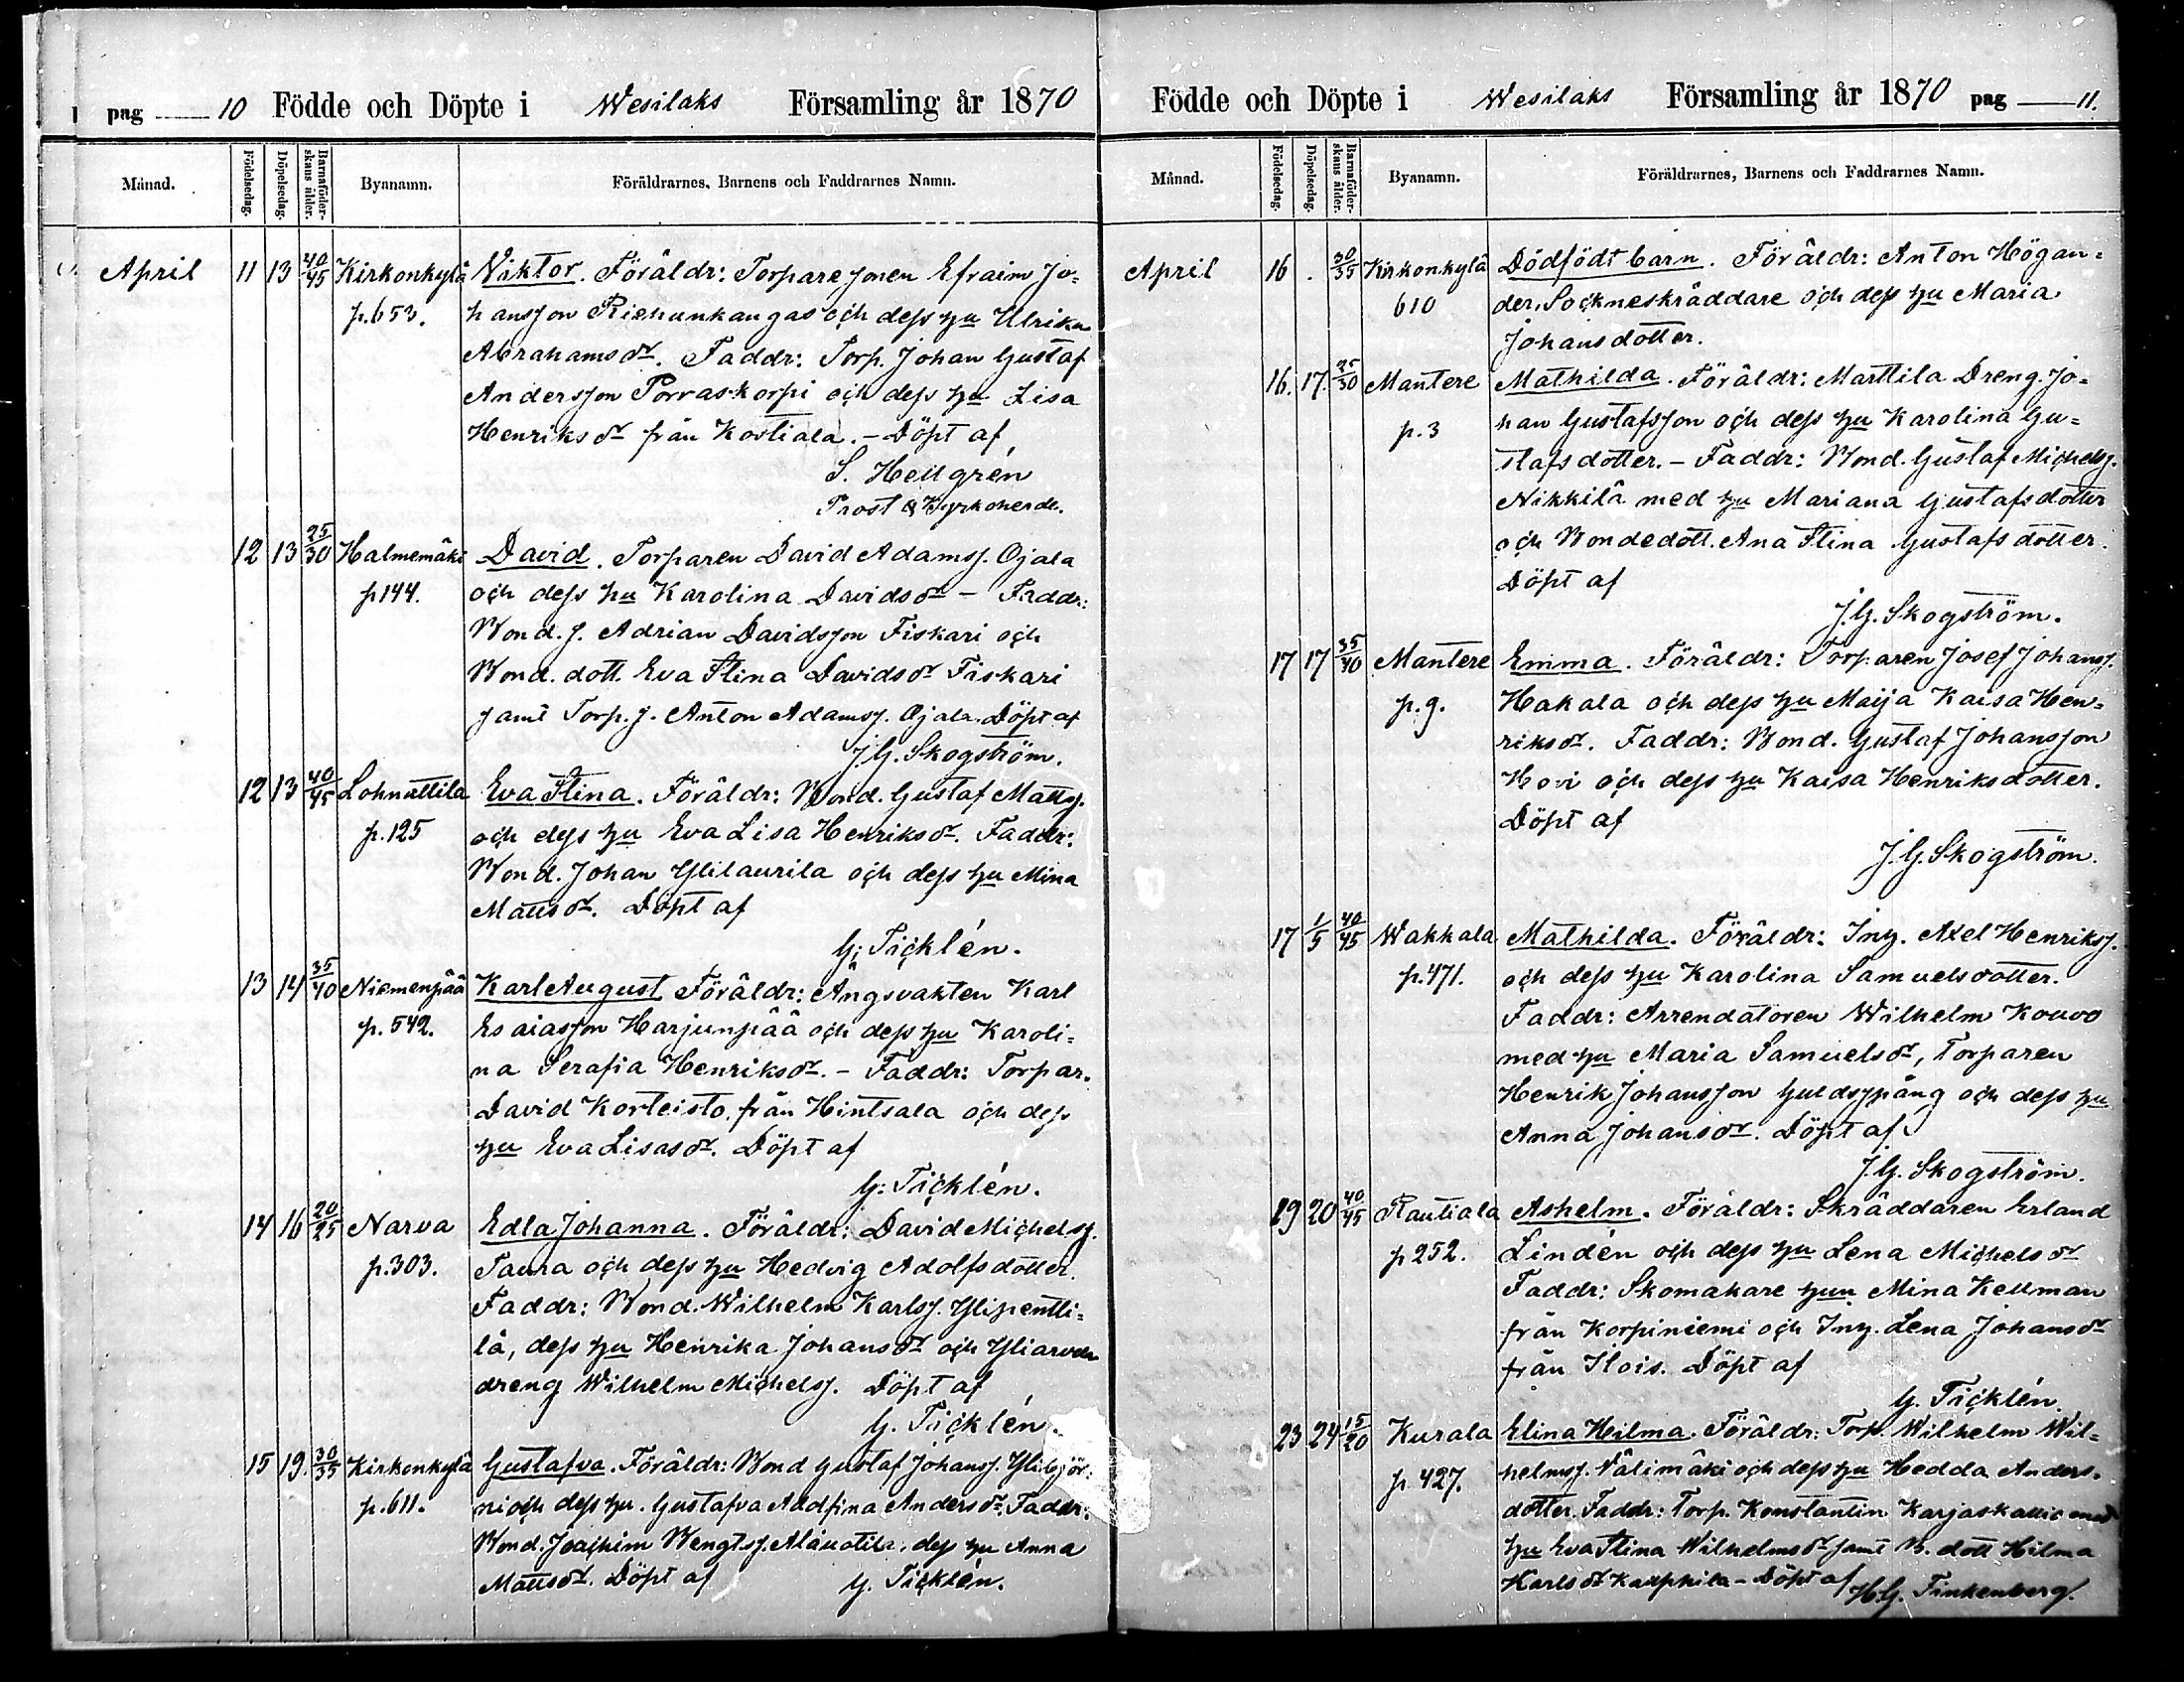 pag 10 Födde och Döpte i Wesilaks Församling år 1870
Månad. Födelsedag. Döpelsedag. Barnaföderskans ålder. Byanamn. Föräldrarnes, Barnens och Faddrarnes Namn.
April 11 13 40/45 Kirkonkylä Viktor. Föräldr: Torparesonen Efraim Jo=
p. 653. hansson och dess hu Ulrika
Abrahamsdr. Faddr: Torp. Johan Gustaf
Andersson Porraskorpi och dess hu Lisa
Henriksdr från Kostiala. – Döpt af
S. Hellgrén
Prost & Kyrkoherde.
12 13 25/30 Halmemäki David. Torparen David Adamss. Ojala
p 144. och dess hu Karolina Davidsdr – Faddr:
Bond. s. Adrian Davidsson Fiskari och
Bond. dott. Eva Stina Davidsdr Fiskari
samt Torp. s. Anton Adamss. Ojala. Döpt af
J. G. Skogström.
12 13 40/45 Lohnuttila Eva Stina. Föräldr: Bond. Gustaf Matts.
p. 125 och dess hu Eva Lisa Henriksdr. Faddr:
Bond. Johan Ylilaurila och dess hu Mina
Mattsdr. Döpt af
G. Ticklén.
13 14 35/40 Niemenpää Karl August Föräldr: Ängsvakten Karl
p. 542. Esaiasson Harjunpää och dess hu Karoli=
na Serafia Henriksdr. – Faddr: Torpar.
David Korteisto, från Hintsala och dess
hu Eva Lisasdr. Döpt af
G: Ticklén.
14 16 20/25 Narva Edla Johanna. Föräldr: David Michelss.
p. 303. Taura och dess hu Hedvig Adolfsdotter.
Faddr: Bond. Wilhelm Karlss. Ylipentti=
lä, dess hu Henrika Johansdr och
dreng Wilhelm Michelss. Döpt af
G. Ticklén.
15 19. 30/35 Kirkonkylä Gustafva. Föräldr: Bond Gustaf Johanss.
p. 611. och dess hu. Gustafva Adolfina Andersdr. Faddr:
Bond. Joachim Bengtss. dess hu Anna
Mattsdr. Döpt af G. Ticklén.
Födde och Döpte i Wesilaks Församling år 1870 pag 11.
Månad. Födelsedag. Döpelsedag. Barnaföderskans ålder. Byanamn. Föräldrarnes, Barnens och Faddrarnes Namn.
April 16 . 30/35 Kirkonkylä Dödfödt barn. Föräldr: Anton Högan=
610 der, Sockneskräddare och dess hu Maria
Johansdotter.
16. 17. 25/30 Mantere Mathilda. Föräldr: Marttila Dreng. Jo=
p. 3 han Gustafsson och dess hu Karolina Gu=
stafsdotter. – Faddr: Bond. Gustaf Michelss.
Nikkilä med hu Mariana Gustafsdotter
och Bondedott. Ana Stina Gustafsdotter.
Döpt af
J. G. Skogström.
17 17 35/40 Mantere Emma. Föräldr: Torparen Josef Johanss.
p. 9. Hakala och dess hu Maija Kaisa Hen=
riksdr. Faddr: Bond. Gustaf Johansson
Hovi och dess hu Kaisa Henriksdotter.
Döpt af
J. G. Skogström.
17 1/5 40/45 Wakkala Mathilda. Föräldr: Ing. Axel Henrikss.
p. 471. och dess hu Karolina Samuelsdotter.
Faddr: Arrendatoren Wilhelm Kouvo
med hu Maria Samuelsdr, Torparen
Henrik Johansson Guldspång och dess hu
Anna Johansdr. Döpt af
J. G. Skogström.
19 20 40/45 Rautiala Ashelm. Föräldr: Skräddaren Erland
p 252. Lindén och dess hu Lena Michelsdr
Faddr: Skomakare hun Mina Kellman
från Korpiniemi och Ing. Lena Johansdr
från Ilois. Döpt af
G. Ticklén.
23 24 15/20 Kurala Elina Hilma. Föräldr: Torp. Wilhelm Wil=
p 427. helmss. Välimäki och dess hu Hedda Anders.
dotter. Faddr: Torp. Konstantin Karjaskallio med
hu Eva Stina Wilhelmsdr samt B. dott Hilma
Karlsdr – Döpt af
H. G. Finkenberg.